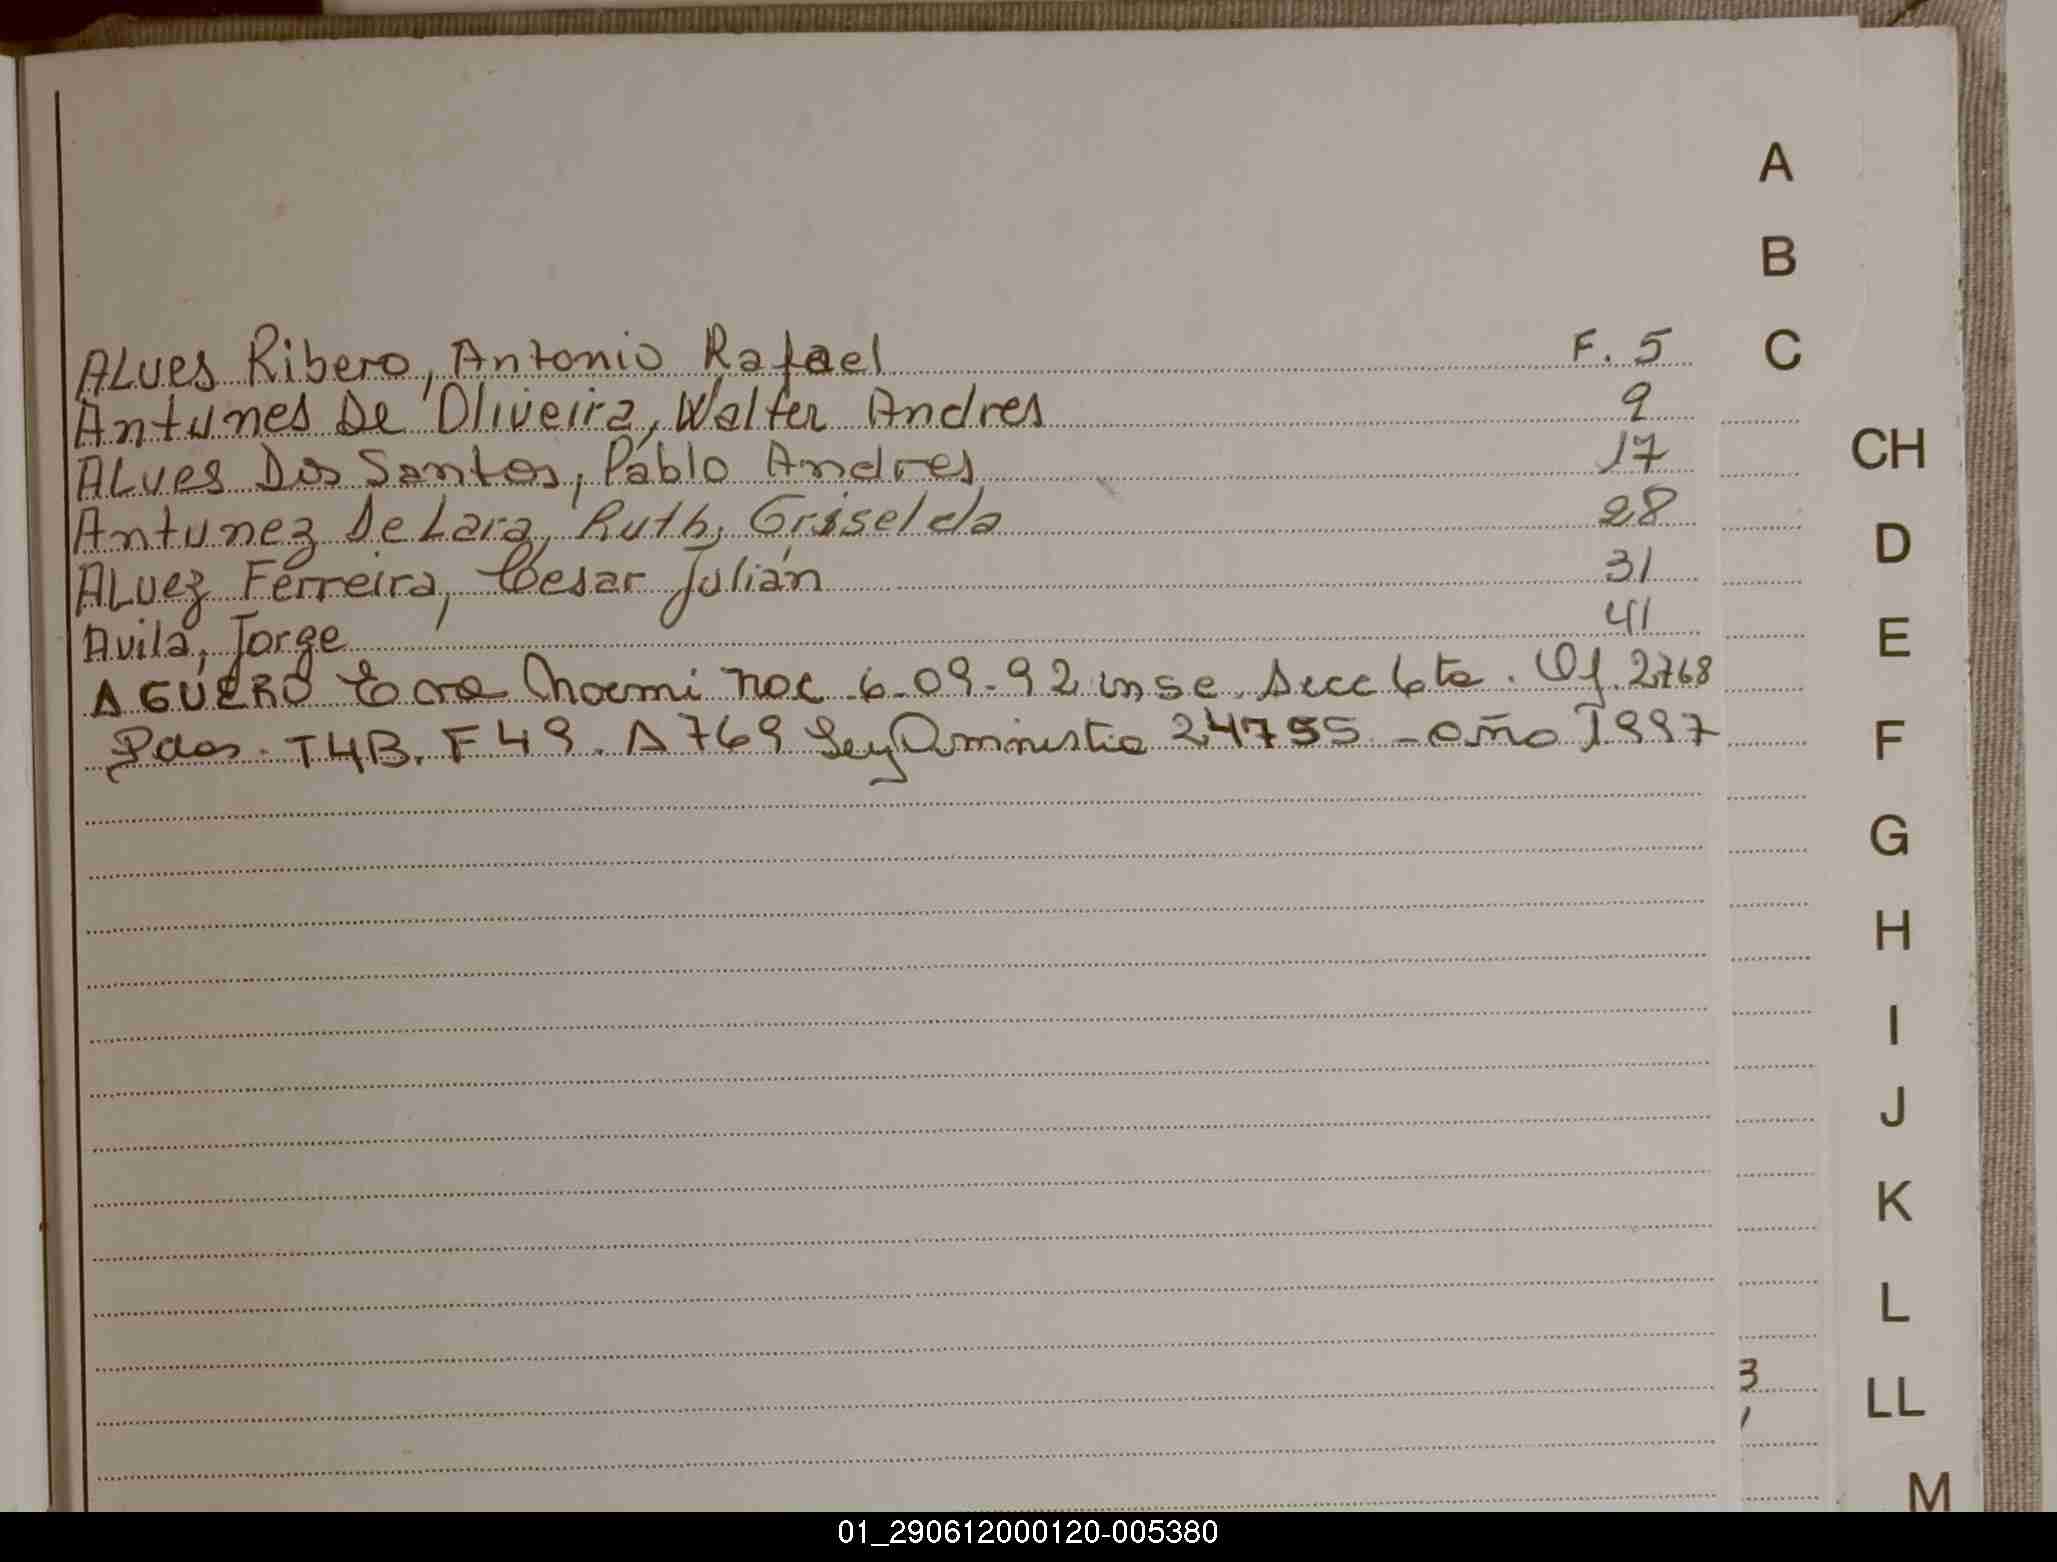 ALves Ribero, Antonio Rafael F. 5
Antunes De Oliveira, Walter Andres 9
ALves Dos Santos, Pablo Andres 17
Antunez De Lara, Ruth, Griselda 28
ALvez Ferreira, Cesar Julián 31
Avila, Jorge 41
AGUERO Noemi nac 6-09-92 inse. Secc 6ta. Of. 2768
Pdas. T4B. F 49. A 769 Ley Aministia 24755 - año 1997
A
B
C
CH
D
E
F
G
H
I
J
K
L
3
LL
M
01_290612000120-005380